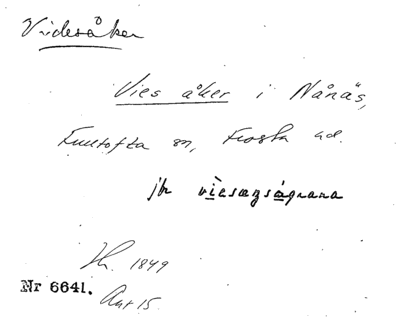 Videsåker
Vies åker i Nånäs,
Fulltofta sn, Frosta hd.
jfr vìesagságrana
Hr. 1849
Nr 6641.
Ant 15